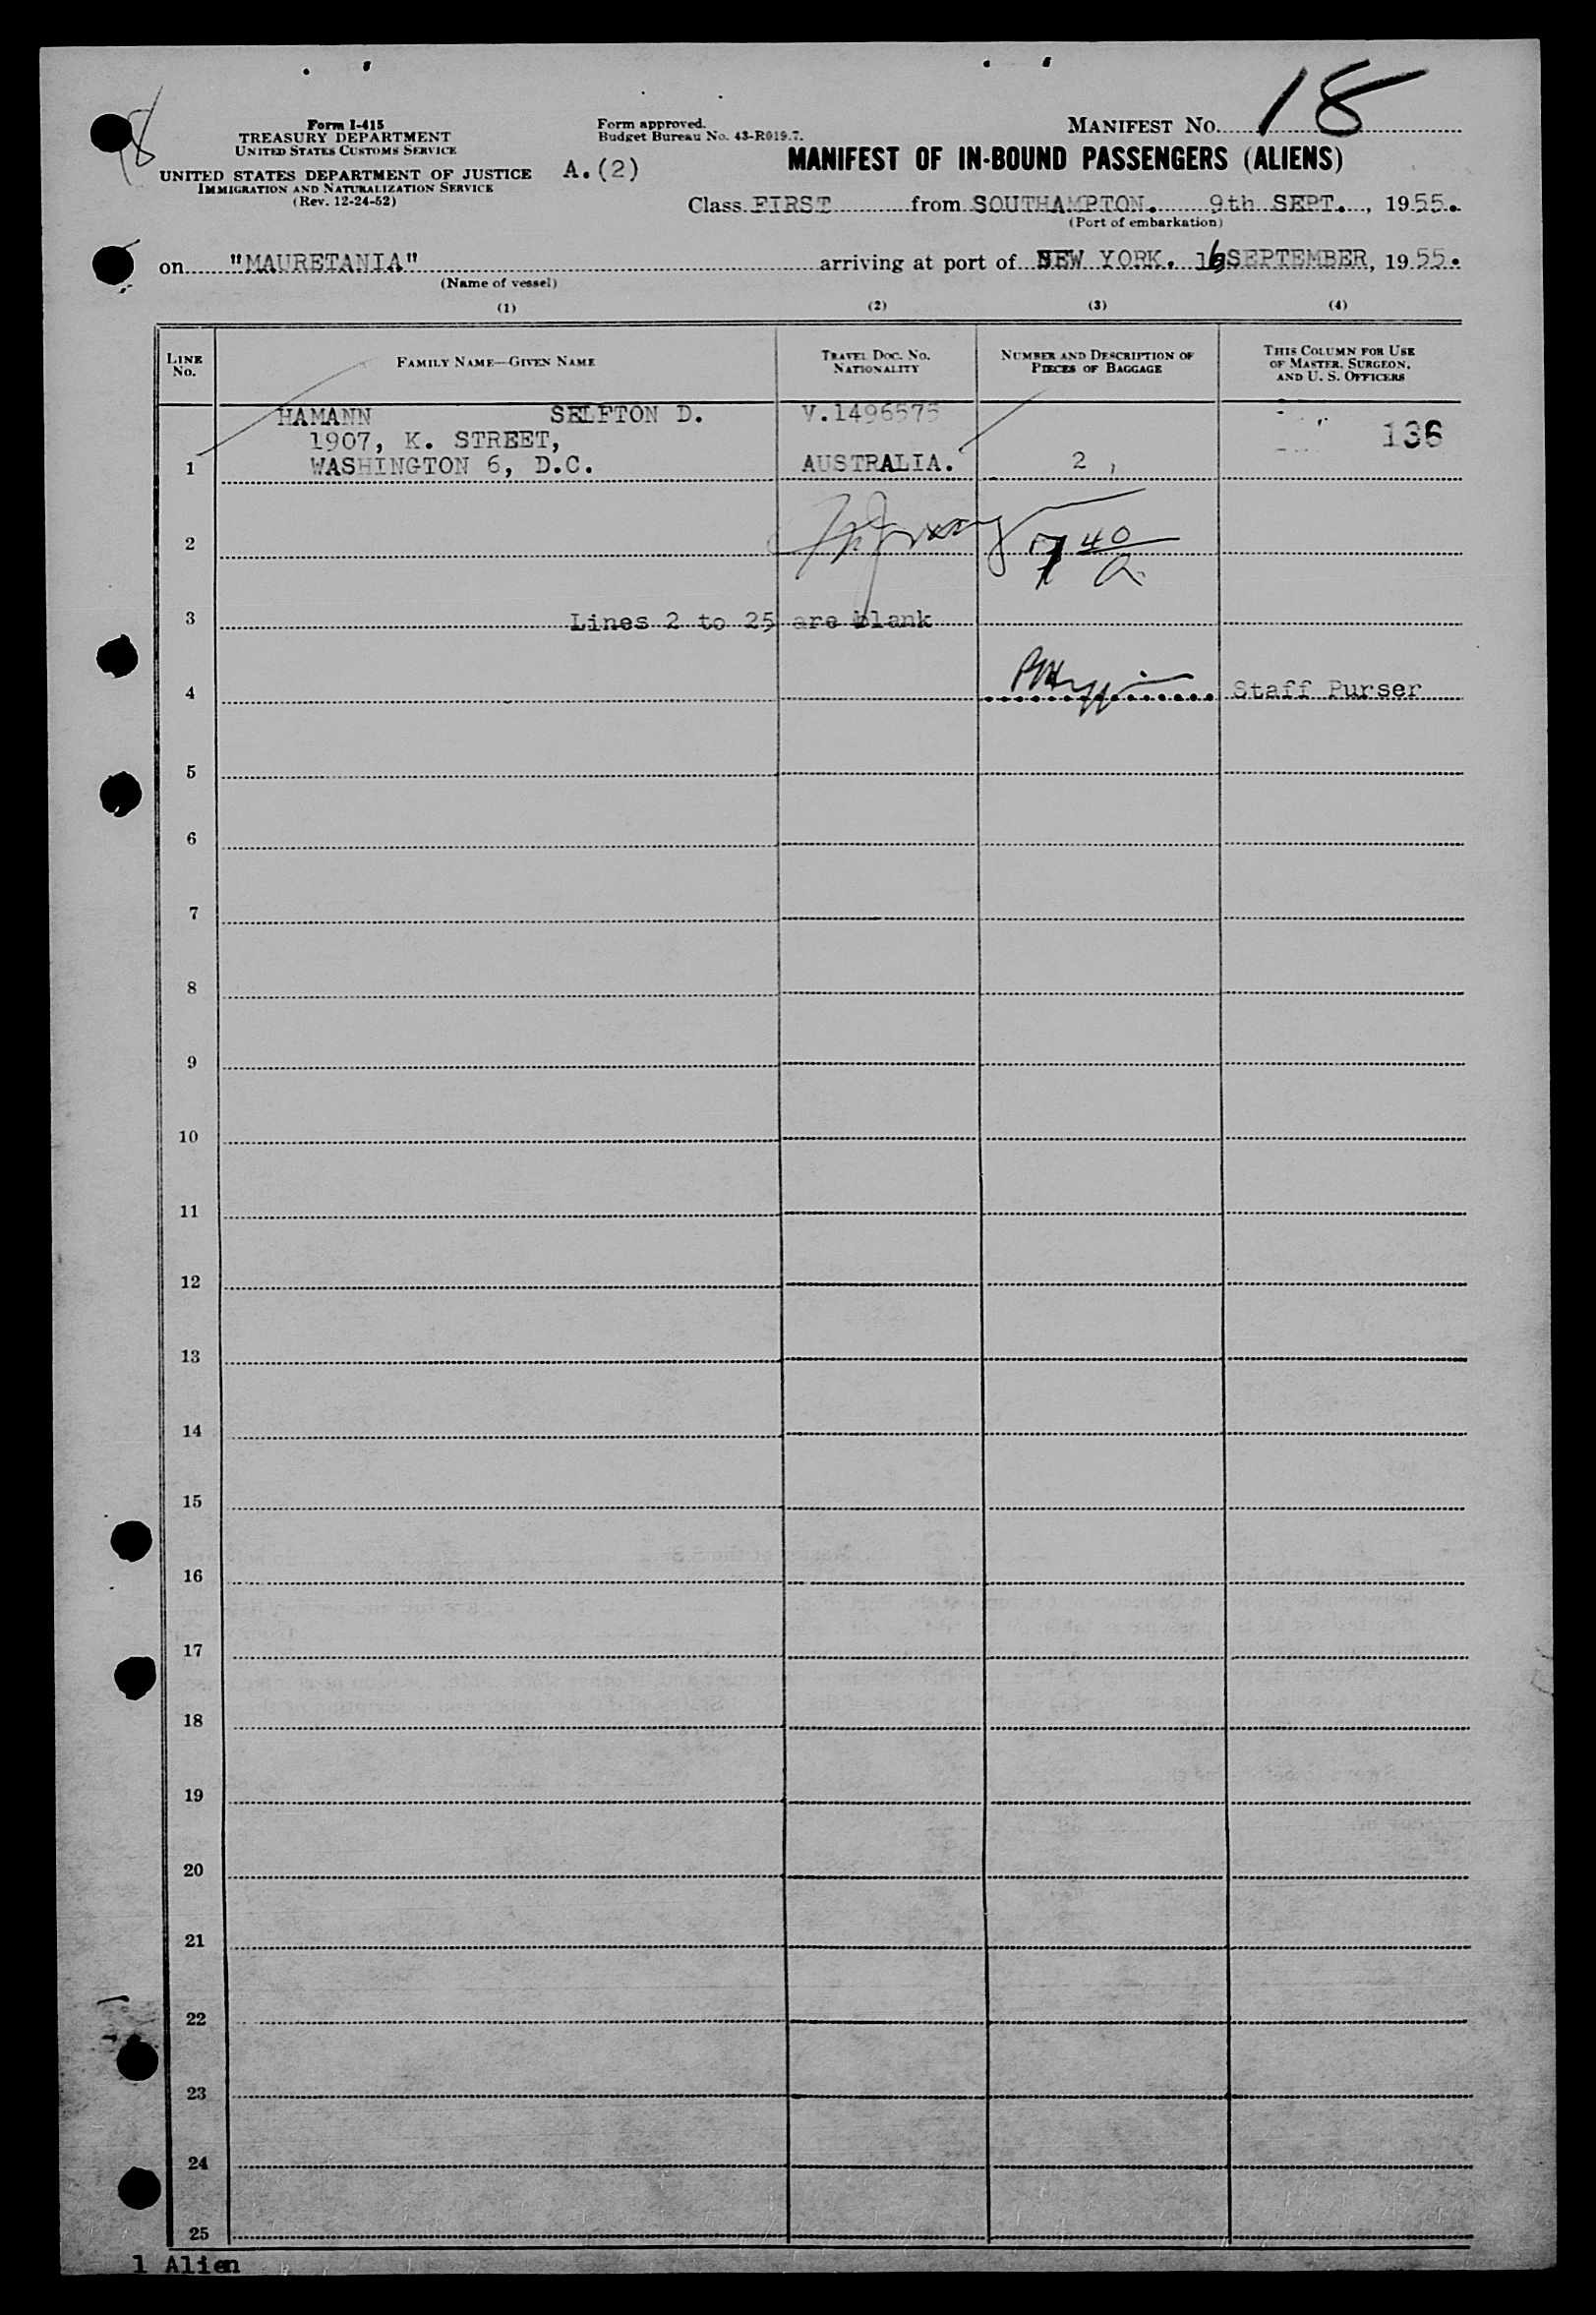 18
Form I-415
TREASURY DEPARTMENT
UNITED STATES CUSTOMS SERVICE
UNITED STATES DEPARTMENT OF JUSTICE
IMMIGRATION AND NATURALIZATION SERVICE
(Rev. 12-24-52)
Form approved.
Budget Bureau No. 43-R019.7.
A.(2)
MANIFEST No. 18
MANIFEST OF IN-BOUND PASSENGERS (ALIENS)
Class FIRST from SOUTHAMPTON. 9th SEPT., 1955.
(Port of embarkation)
on "MAURETANIA" arriving at port of NEW YORK. 16 SEPTEMBER, 1955.
(Name of vessel)
(1) (2) (3) (4)
LINE No. FAMILY NAME—GIVEN NAME TRAVEL DOC. No. NATIONALITY NUMBER AND DESCRIPTION OF PIECES OF BAGGAGE THIS COLUMN FOR USE OF MASTER, SURGEON, AND U. S. OFFICERS
HAMANN SELFTON D. V.1496575
1907, K. STREET, 136
1 WASHINGTON 6, D.C. AUSTRALIA. 2
2 7 40
3 Lines 2 to 25 are blank
4 Staff Purser
5
6
7
8
9
10
11
12
13
14
15
16
17
18
19
20
21
22
23
24
25
1 Alien